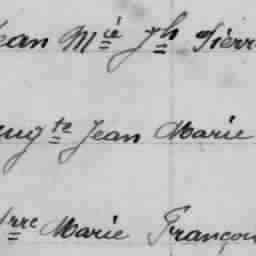 Jean Mie Jh Pierre
Augte Jean Marie
Pierre Marie François